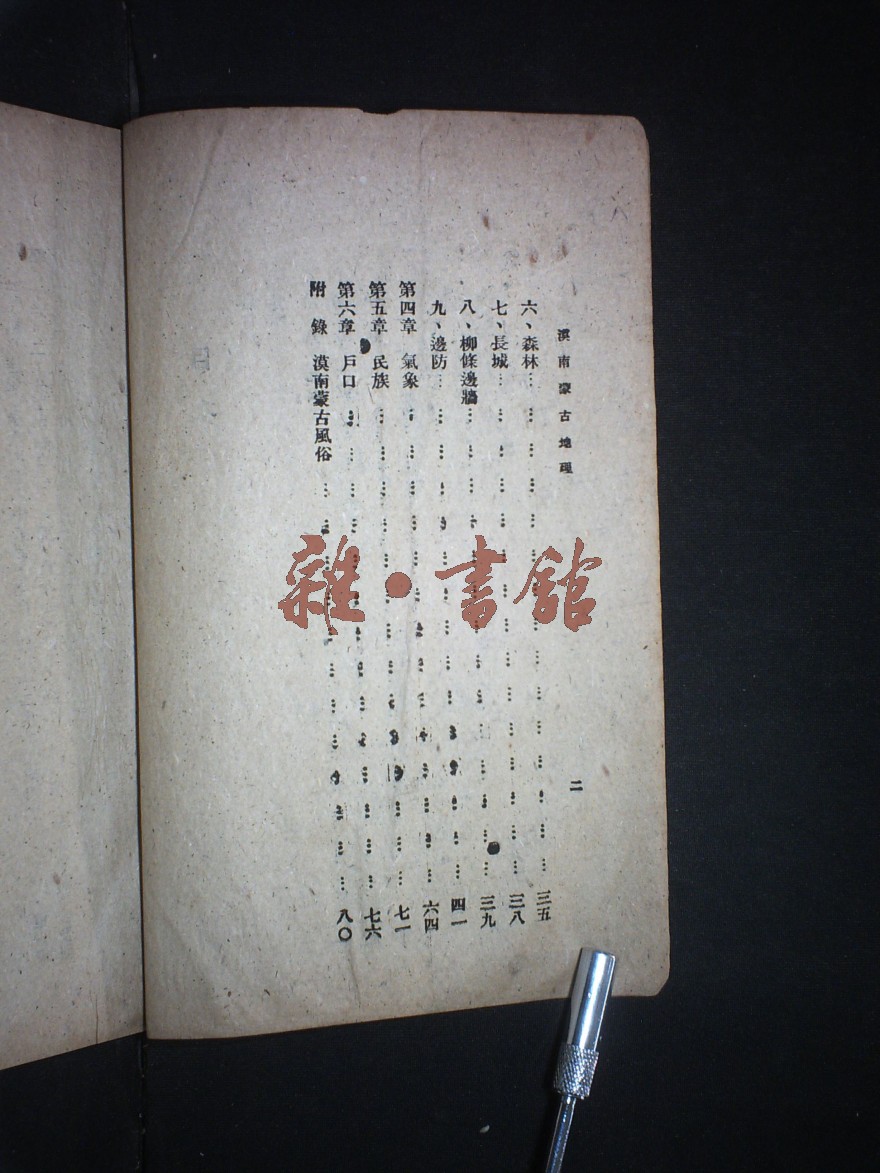 漠南蒙古地理 二
六、森林………………三五
七、長城………………三八
八、柳條邊牆………………三九
九、邊防………………四一
第四章 氣象………………六四
第五章 民族………………七一
第六章 戶口………………七六
附錄 漠南蒙古風俗………………八〇
雜•書館